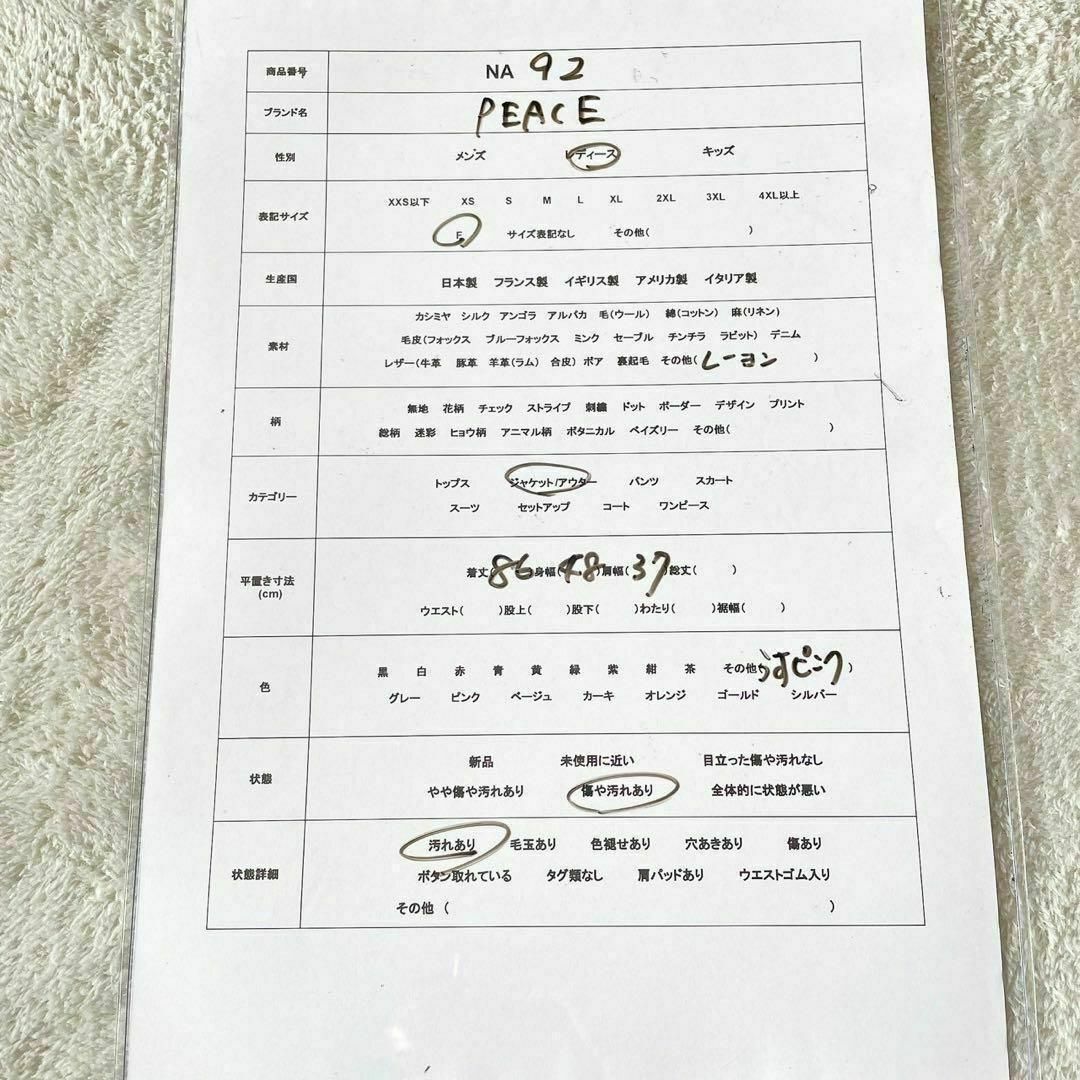 商品番号 NA 92
ブランド名 PEACE
性別 メンズ レディース キッズ
表記サイズ XXS以下 XS S M L XL 2XL 3XL 4XL以上
F サイズ表記なし その他( )
生産国 日本製 フランス製 イギリス製 アメリカ製 イタリア製
素材 カシミヤ シルク アンゴラ アルパカ 毛(ウール) 綿(コットン) 麻(リネン)
毛皮(フォックス ブルーフォックス ミンク セーブル チンチラ ラビット) デニム
レザー(牛革 豚革 羊革(ラム) 合皮) ボア 裏起毛 その他(レーヨン)
柄 無地 花柄 チェック ストライプ 刺繍 ドット ボーダー デザイン プリント
総柄 迷彩 ヒョウ柄 アニマル柄 ボタニカル ペイズリー その他( )
カテゴリー トップス ジャケット/アウター パンツ スカート
スーツ セットアップ コート ワンピース
平置き寸法 (cm) 着丈(86)身幅(48)肩幅(37)総丈( )
ウエスト( )股上( )股下( )わたり( )裾幅( )
色 黒 白 赤 青 黄 緑 紫 紺 茶 その他(うすピンク)
グレー ピンク ベージュ カーキ オレンジ ゴールド シルバー
状態 新品 未使用に近い 目立った傷や汚れなし
やや傷や汚れあり 傷や汚れあり 全体的に状態が悪い
状態詳細 汚れあり 毛玉あり 色褪せあり 穴あきあり 傷あり
ボタン取れている タグ類なし 肩パッドあり ウエストゴム入り
その他 ( )